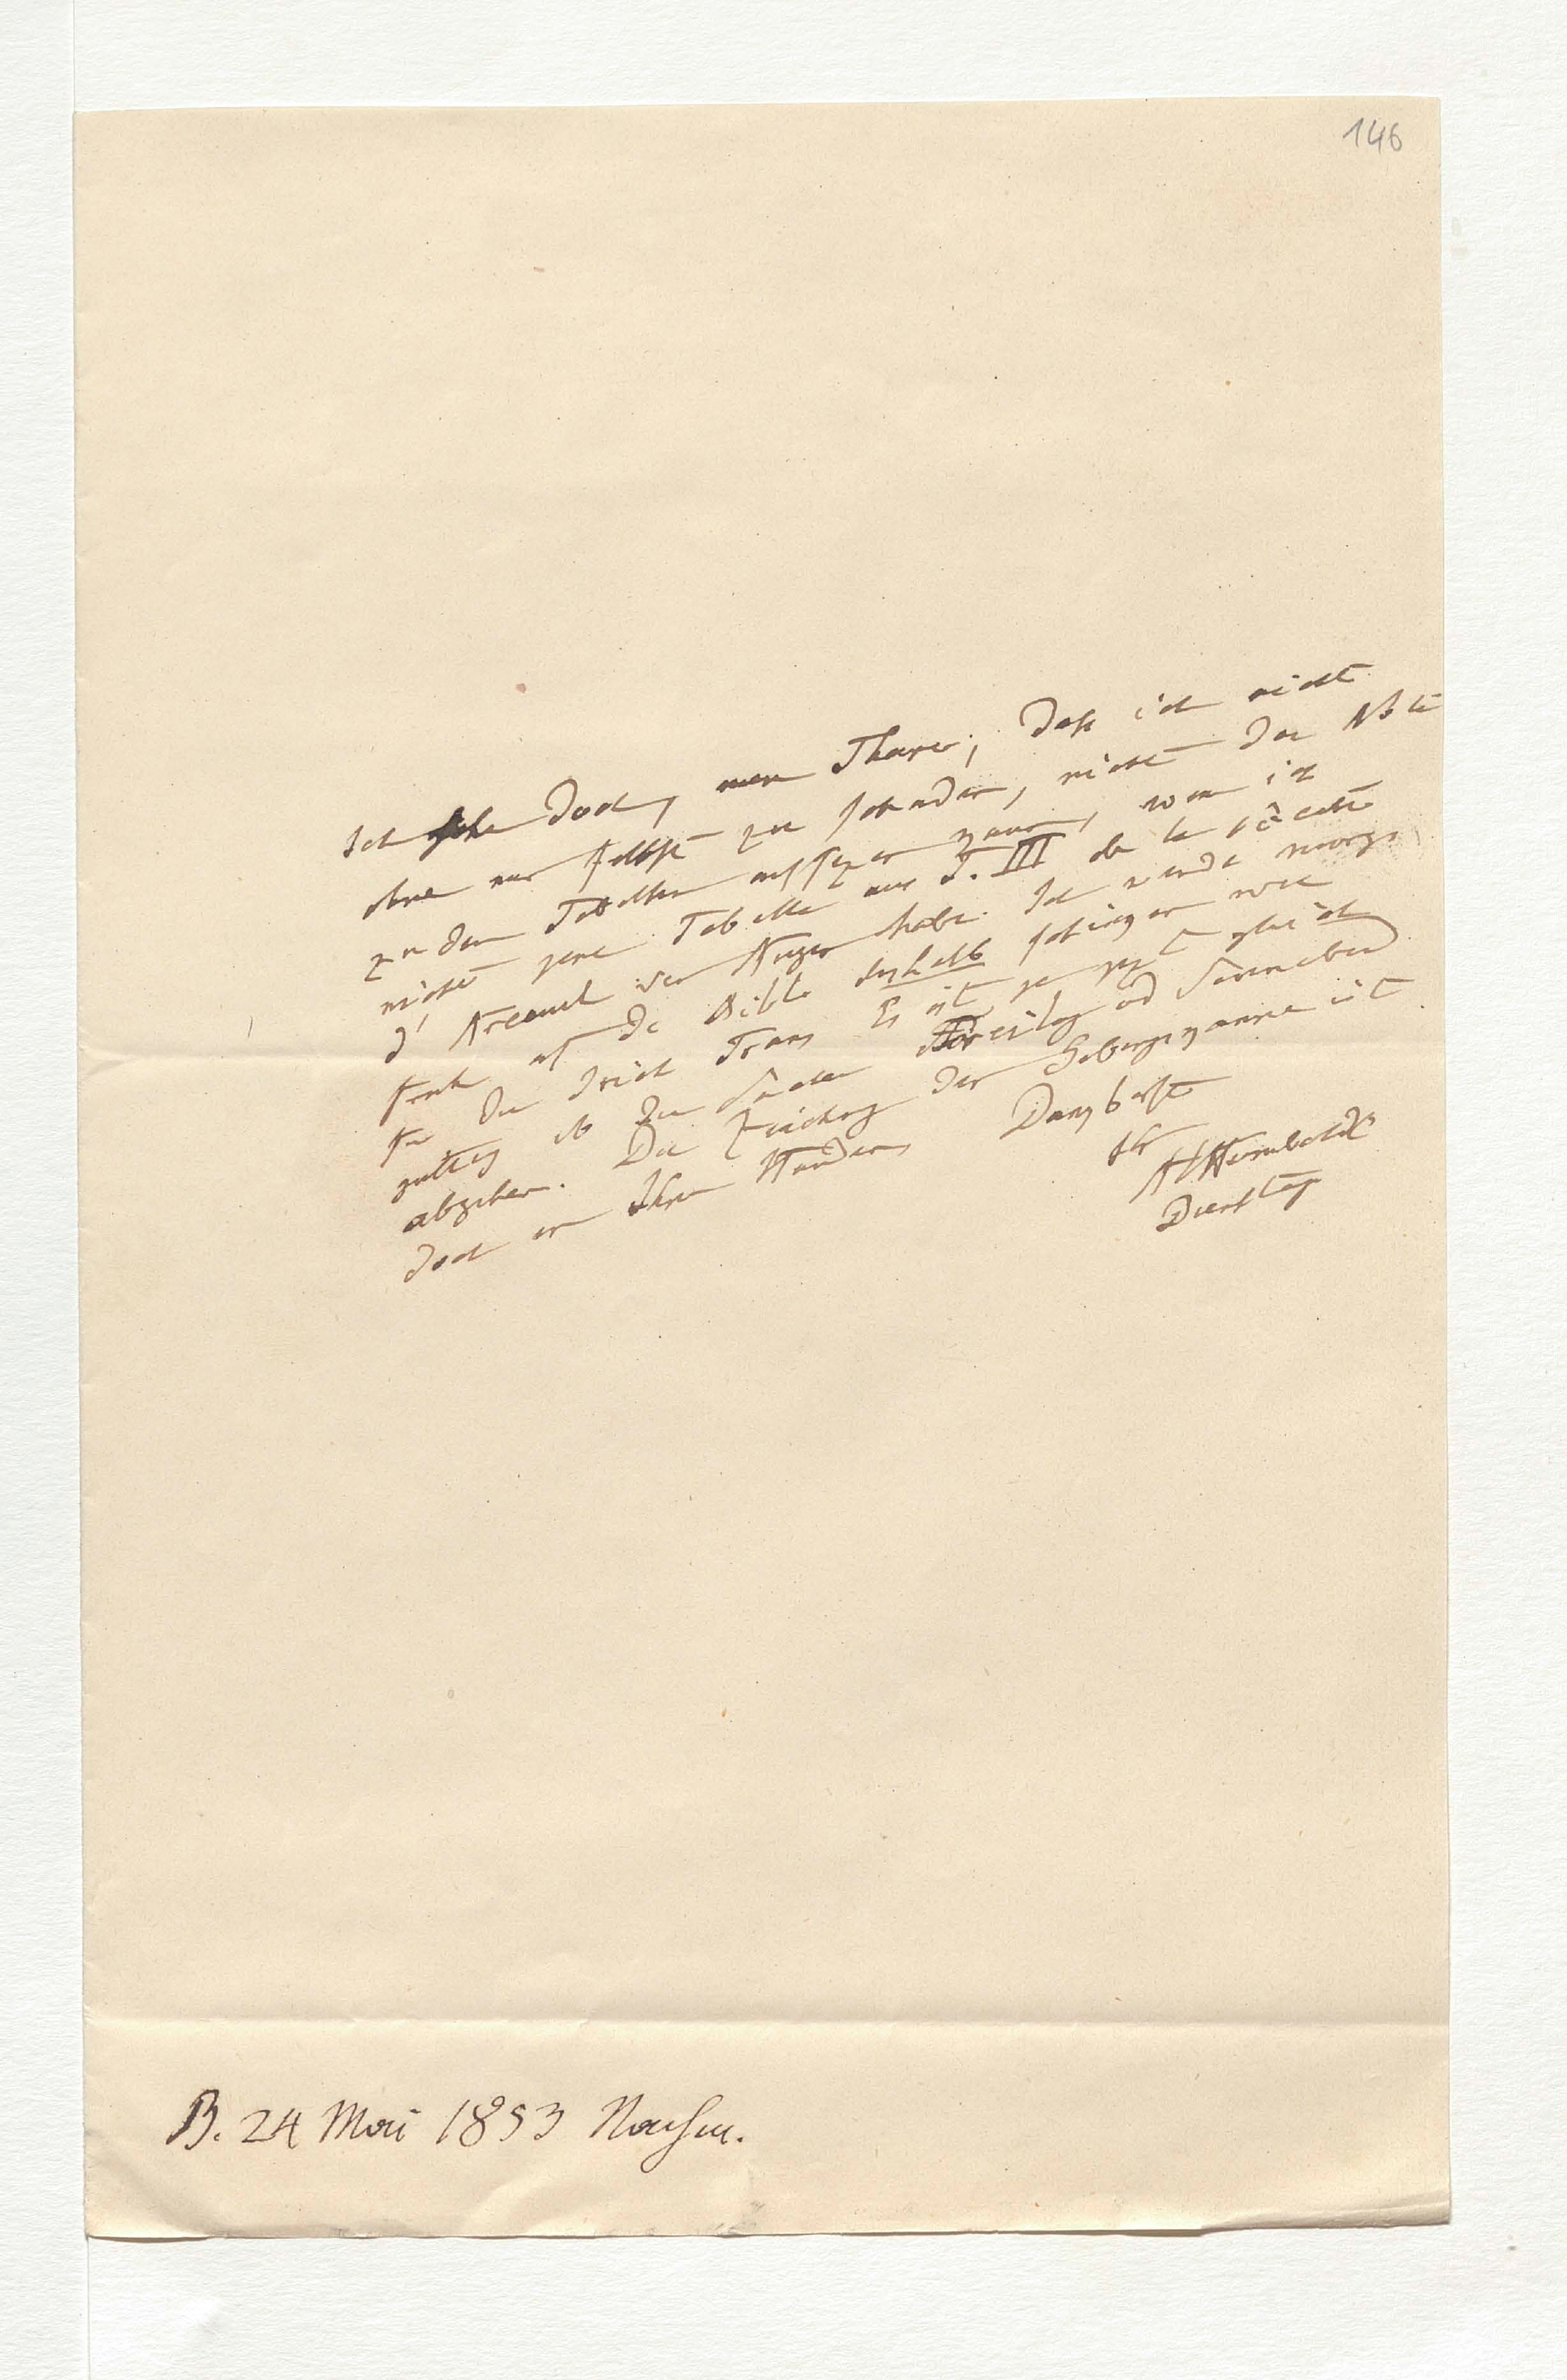 146
Ich sehe doch, mein Theurer, daß ich nicht
ohne mir selbst zu schaden, nicht die Note
zu den Tabellen aufsezen kann, wenn ich
nicht jene Tabelle aus T. III de la société
d'Arcueil vor Augen habe. Ich werde morgen
früh auf die Biblio deshalb schiken wie
für die Trans Es ist ja jezt gleich
gültig ob Sie Freitag od Sonnabend
abgehen. Die der Gebirgs ist
doch in Ihren Händen
Dankbarst
Ihr
AvHumboldt
Dienstag
B. 24 Mai 1853 Nachm.